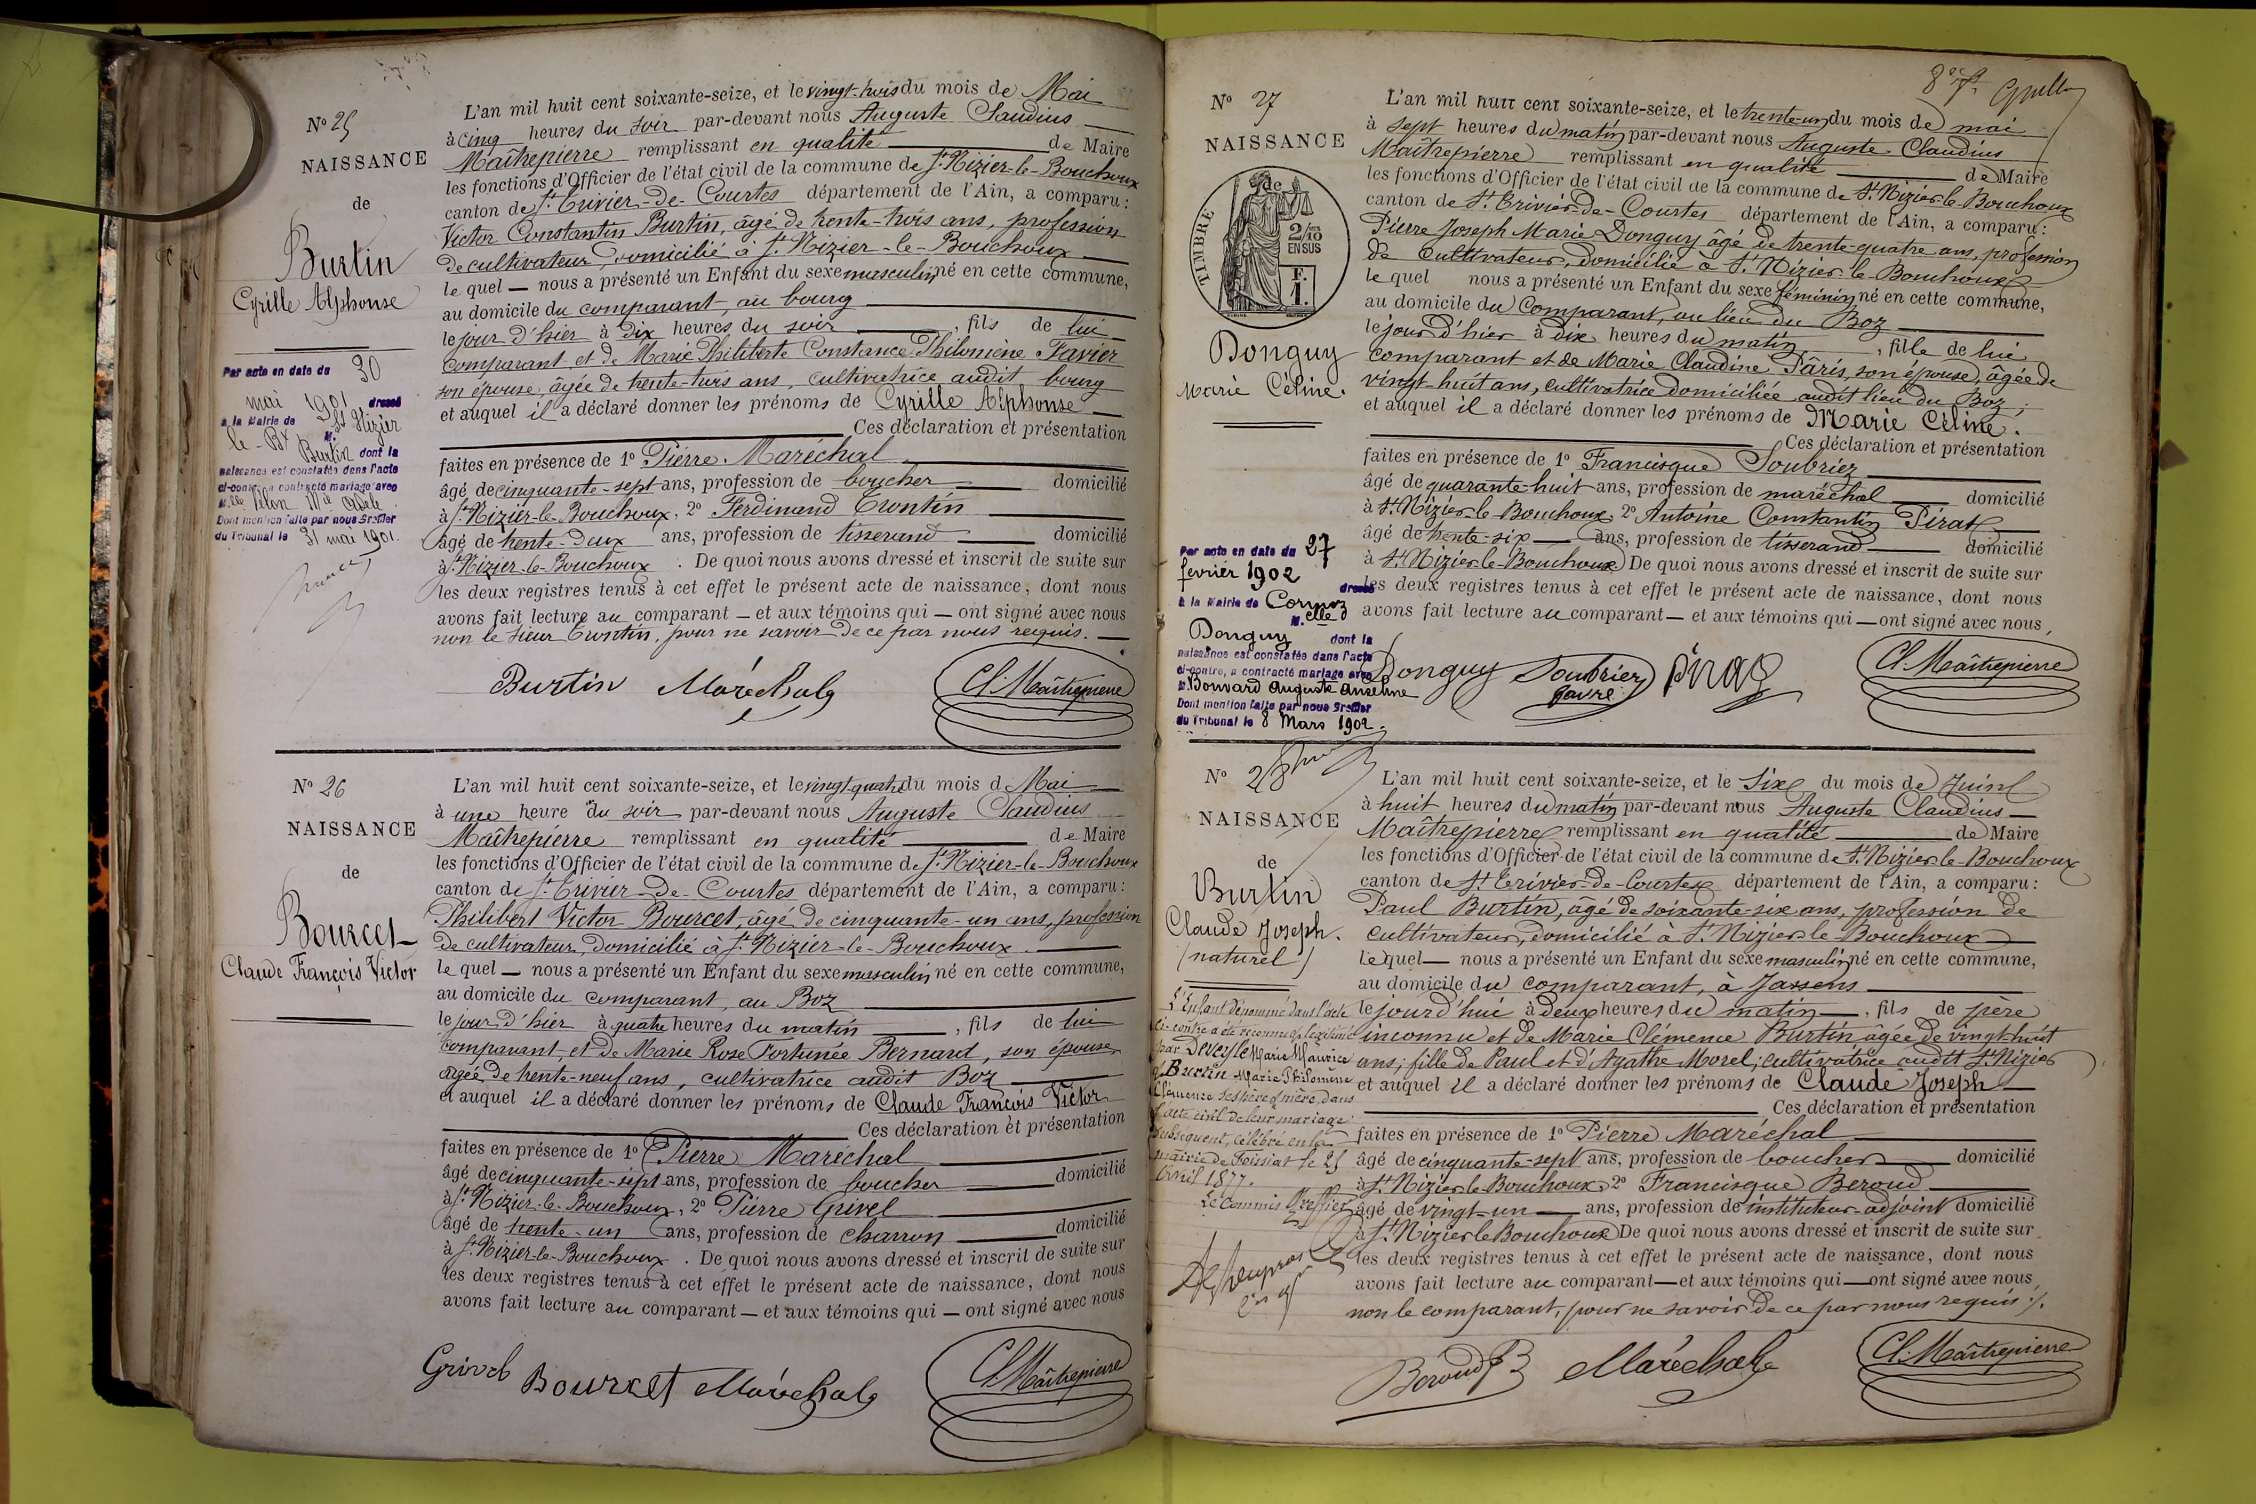 N° 25
NAISSANCE
de
Burtin
Cyrille Alphonse
Par acte en date du 30
mai 1901 dressé
à la Mairie de St Nizier
le-Bx M.
Burtin dont la
naissance est constatée dans l'acte
ci-contre, a contracté mariage avec
Mlle Vélon Mie Adèle
Dont mention faite par nous Greffier
du Tribunal le 31 mai 1901.
L'an mil huit cent soixante-seize, et le vingt-trois du mois de Mai
à cinq heures du soir par-devant nous Auguste Claudius
Maîtrepierre remplissant en qualité de Maire
les fonctions d'Officier de l'état civil de la commune de St Nizier-le-Bouchoux
canton de St Trivier-de-Courtes département de l'Ain, a comparu :
Victor Constantin Burtin, âgé de trente-trois ans, profession
de cultivateur, domicilié à St Nizier-le-Bouchoux
le quel — nous a présenté un Enfant du sexe masculin, né en cette commune,
au domicile du comparant, au bourg
le jour d'hier à dix heures du soir , fils de lui
comparant et de Marie Philiberte Constance Philomène Favier
son épouse, âgée de trente-trois ans, cultivatrice audit bourg
et auquel il a déclaré donner les prénoms de Cyrille Alphonse
Ces déclaration et présentation
faites en présence de 1° Pierre Maréchal
âgé de cinquante-sept ans, profession de boucher domicilié
à St Nizier-le-Bouchoux, 2° Ferdinand Trontin
âgé de trente-deux ans, profession de tisserand domicilié
à St Nizier-le-Bouchoux . De quoi nous avons dressé et inscrit de suite sur
les deux registres tenus à cet effet le présent acte de naissance, dont nous
avons fait lecture au comparant — et aux témoins qui — ont signé avec nous
non le sieur Trontin, pour ne savoir de ce par nous requis.
Burtin Maréchal Cl. Maîtrepierre
N° 26
NAISSANCE
de
Bourcet
Claude François Victor
L'an mil huit cent soixante-seize, et le vingt-quatre du mois d Mai
à une heure du soir par-devant nous Auguste Claudius
Maîtrepierre remplissant en qualité de Maire
les fonctions d'Officier de l'état civil de la commune de St Nizier-le-Bouchoux
canton de St Trivier-de-Courtes département de l'Ain, a comparu :
Philibert Victor Bourcet, âgé de cinquante-un ans, profession
de cultivateur, domicilié à St Nizier-le-Bouchoux
le quel — nous a présenté un Enfant du sexe masculin, né en cette commune,
au domicile du comparant, au Boz
le jour d'hier à quatre heures du matin , fils de lui
comparant et de Marie Rose Fortunée Bernard, son épouse
âgée de trente-neuf ans, cultivatrice audit Boz
et auquel il a déclaré donner les prénoms de Claude François Victor
Ces déclaration et présentation
faites en présence de 1° Pierre Maréchal
âgé de cinquante-sept ans, profession de boucher domicilié
à St Nizier-le-Bouchoux, 2° Pierre Grivel
âgé de trente-un ans, profession de charron domicilié
à St Nizier-le-Bouchoux . De quoi nous avons dressé et inscrit de suite sur
les deux registres tenus à cet effet le présent acte de naissance, dont nous
avons fait lecture au comparant — et aux témoins qui — ont signé avec nous
Grivel Bourcet Maréchal Cl. Maîtrepierre
N° 27
NAISSANCE
de
TIMBRE
2/10 EN SUS
F. 1.
Donguy
Marie Céline.
Par acte en date du 27
février 1902 dressé
à la Mairie de Cormoz
M.elle
Donguy dont la
naissance est constatée dans l'acte
ci-contre, a contracté mariage avec
M. Bonvard Auguste Anselme
Dont mention faite par nous Greffier
du Tribunal le 8 Mars 1902.
L'an mil huit cent soixante-seize, et le trente-un du mois de mai
à sept heures du matin par-devant nous Auguste Claudius
Maîtrepierre remplissant en qualité de Maire
les fonctions d'Officier de l'état civil de la commune de St Nizier-le-Bouchoux
canton de St Trivier-de-Courtes département de l'Ain, a comparu :
Pierre Joseph Marie Donguy âgé de trente-quatre ans, profession
de Cultivateur, domicilié à St Nizier-le-Bouchoux
le quel nous a présenté un Enfant du sexe féminin né en cette commune,
au domicile du Comparant, au lieu du Boz
le jour d'hier à dix heures du matin , fille de lui
comparant et de Marie Claudine Pâris, son épouse, âgée de
vingt-huit ans, cultivatrice domiciliée audit lieu du Boz ;
et auquel il a déclaré donner les prénoms de Marie Céline.
Ces déclaration et présentation
faites en présence de 1° Francisque Soubrier
âgé de quarante-huit ans, profession de maréchal domicilié
à St Nizier-le-Bouchoux, 2° Antoine Constantin Pirat
âgé de trente-six ans, profession de tisserand domicilié
à St Nizier-le-Bouchoux De quoi nous avons dressé et inscrit de suite sur
les deux registres tenus à cet effet le présent acte de naissance, dont nous
avons fait lecture au comparant — et aux témoins qui — ont signé avec nous
Donguy Soubrier Pirat Cl. Maîtrepierre
N° 28
NAISSANCE
de
Burtin
Claude Joseph.
(naturel)
L'Enfant dénommé dans l'acte
ci-contre a été reconnu & légitimé
par Deveyle Marie Maurice
& Burtin Marie Philomène
Clémence ses père & mère, dans
l'acte civil de leur mariage
subséquent, célébré en la
mairie de Foissiat le 25
Avril 1877.
Le Commis Greffier
L'an mil huit cent soixante-seize, et le six du mois de Juin
à huit heures du matin par-devant nous Auguste Claudius
Maîtrepierre remplissant en qualité de Maire
les fonctions d'Officier de l'état civil de la commune de St Nizier-le-Bouchoux
canton de St Trivier-de-Courtes département de l'Ain, a comparu :
Paul Burtin, âgé de soixante-six ans, profession de
cultivateur, domicilié à St Nizier-le-Bouchoux
le quel — nous a présenté un Enfant du sexe masculin né en cette commune,
au domicile du comparant, à Jassens
le jourd'hui à deux heures du matin , fils de père
inconnu et de Marie Clémence Burtin âgée de vingt-huit
ans, fille de Paul et d'Agathe Morel, cultivatrice audit St Nizier
et auquel il a déclaré donner les prénoms de Claude Joseph
Ces déclaration et présentation
faites en présence de 1° Pierre Maréchal
âgé de cinquante-sept ans, profession de boucher domicilié
à St Nizier-le-Bouchoux, 2° Francisque Beroud
âgé de vingt-un ans, profession de instituteur-adjoint domicilié
à St Nizier-le-Bouchoux De quoi nous avons dressé et inscrit de suite sur
les deux registres tenus à cet effet le présent acte de naissance, dont nous
avons fait lecture au comparant — et aux témoins qui — ont signé avec nous,
non le comparant, pour ne savoir de ce par nous requis ./.
Béroud Maréchal Cl. Maîtrepierre